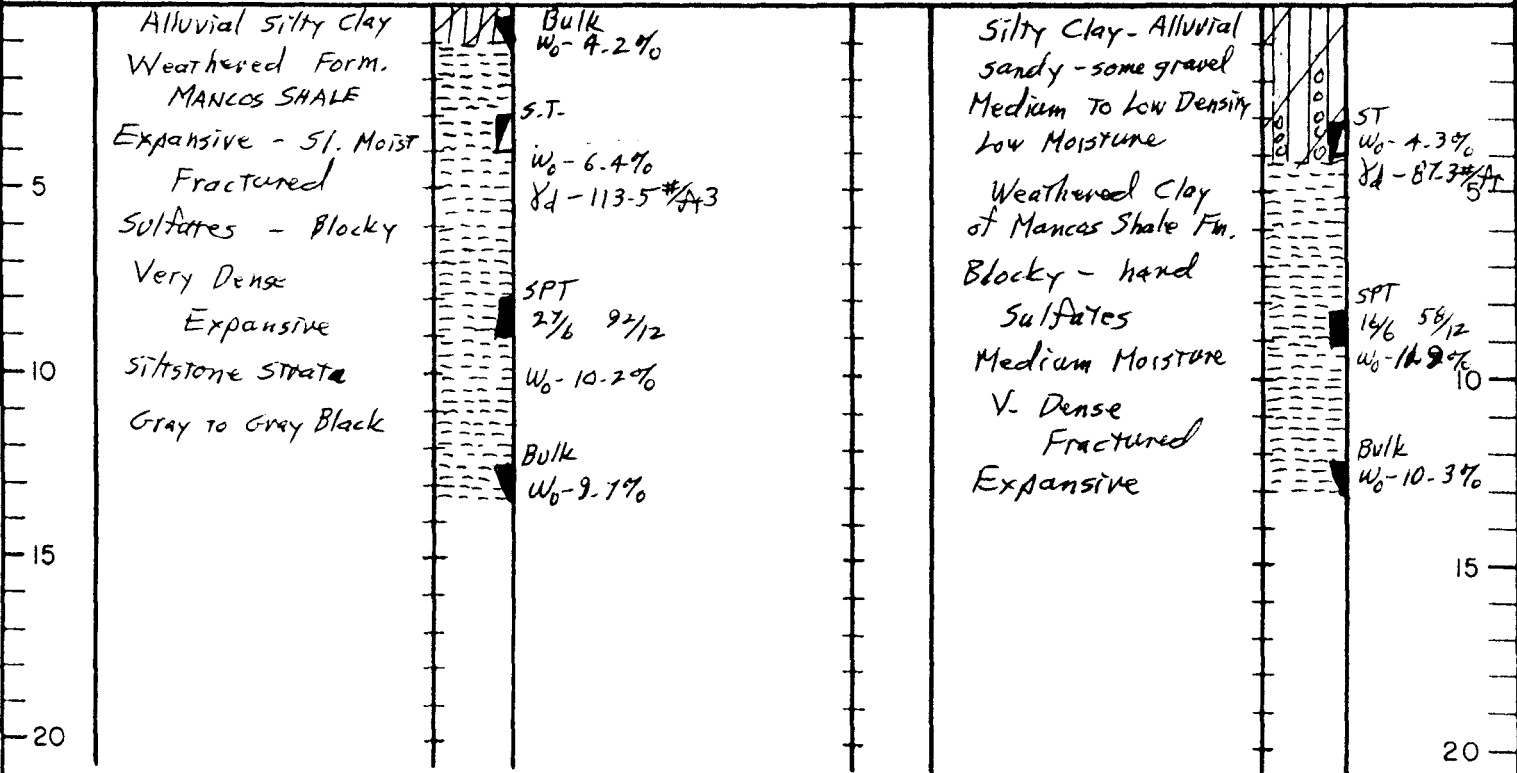 Alluvial Silty Clay
Weathered Form.
MANCOS SHALE
Expansive - Sl. Moist
Fractured
Sulfates - Blocky
Very Dense
Expansive
Siltstone Strata
Gray to Gray Black
5
10
15
20
Bulk
W₀- 4.2%
S.T.
W₀- 6.4%
γd - 113.5 #/ft3
SPT
27/6 92/12
W₀- 10.2%
Bulk
W₀- 9.7%
Silty Clay - Alluvial
sandy - some gravel
Medium To Low Density
Low Moisture
Weathered Clay
of Mancos Shale Fm.
Blocky - hard
Sulfates
Medium Moisture
V. Dense
Fractured
Expansive
ST
W₀- 4.3%
γd - 87.3 #/ft
SPT
16/6 58/12
Bulk
W₀- 10.3%
5
10
15
20